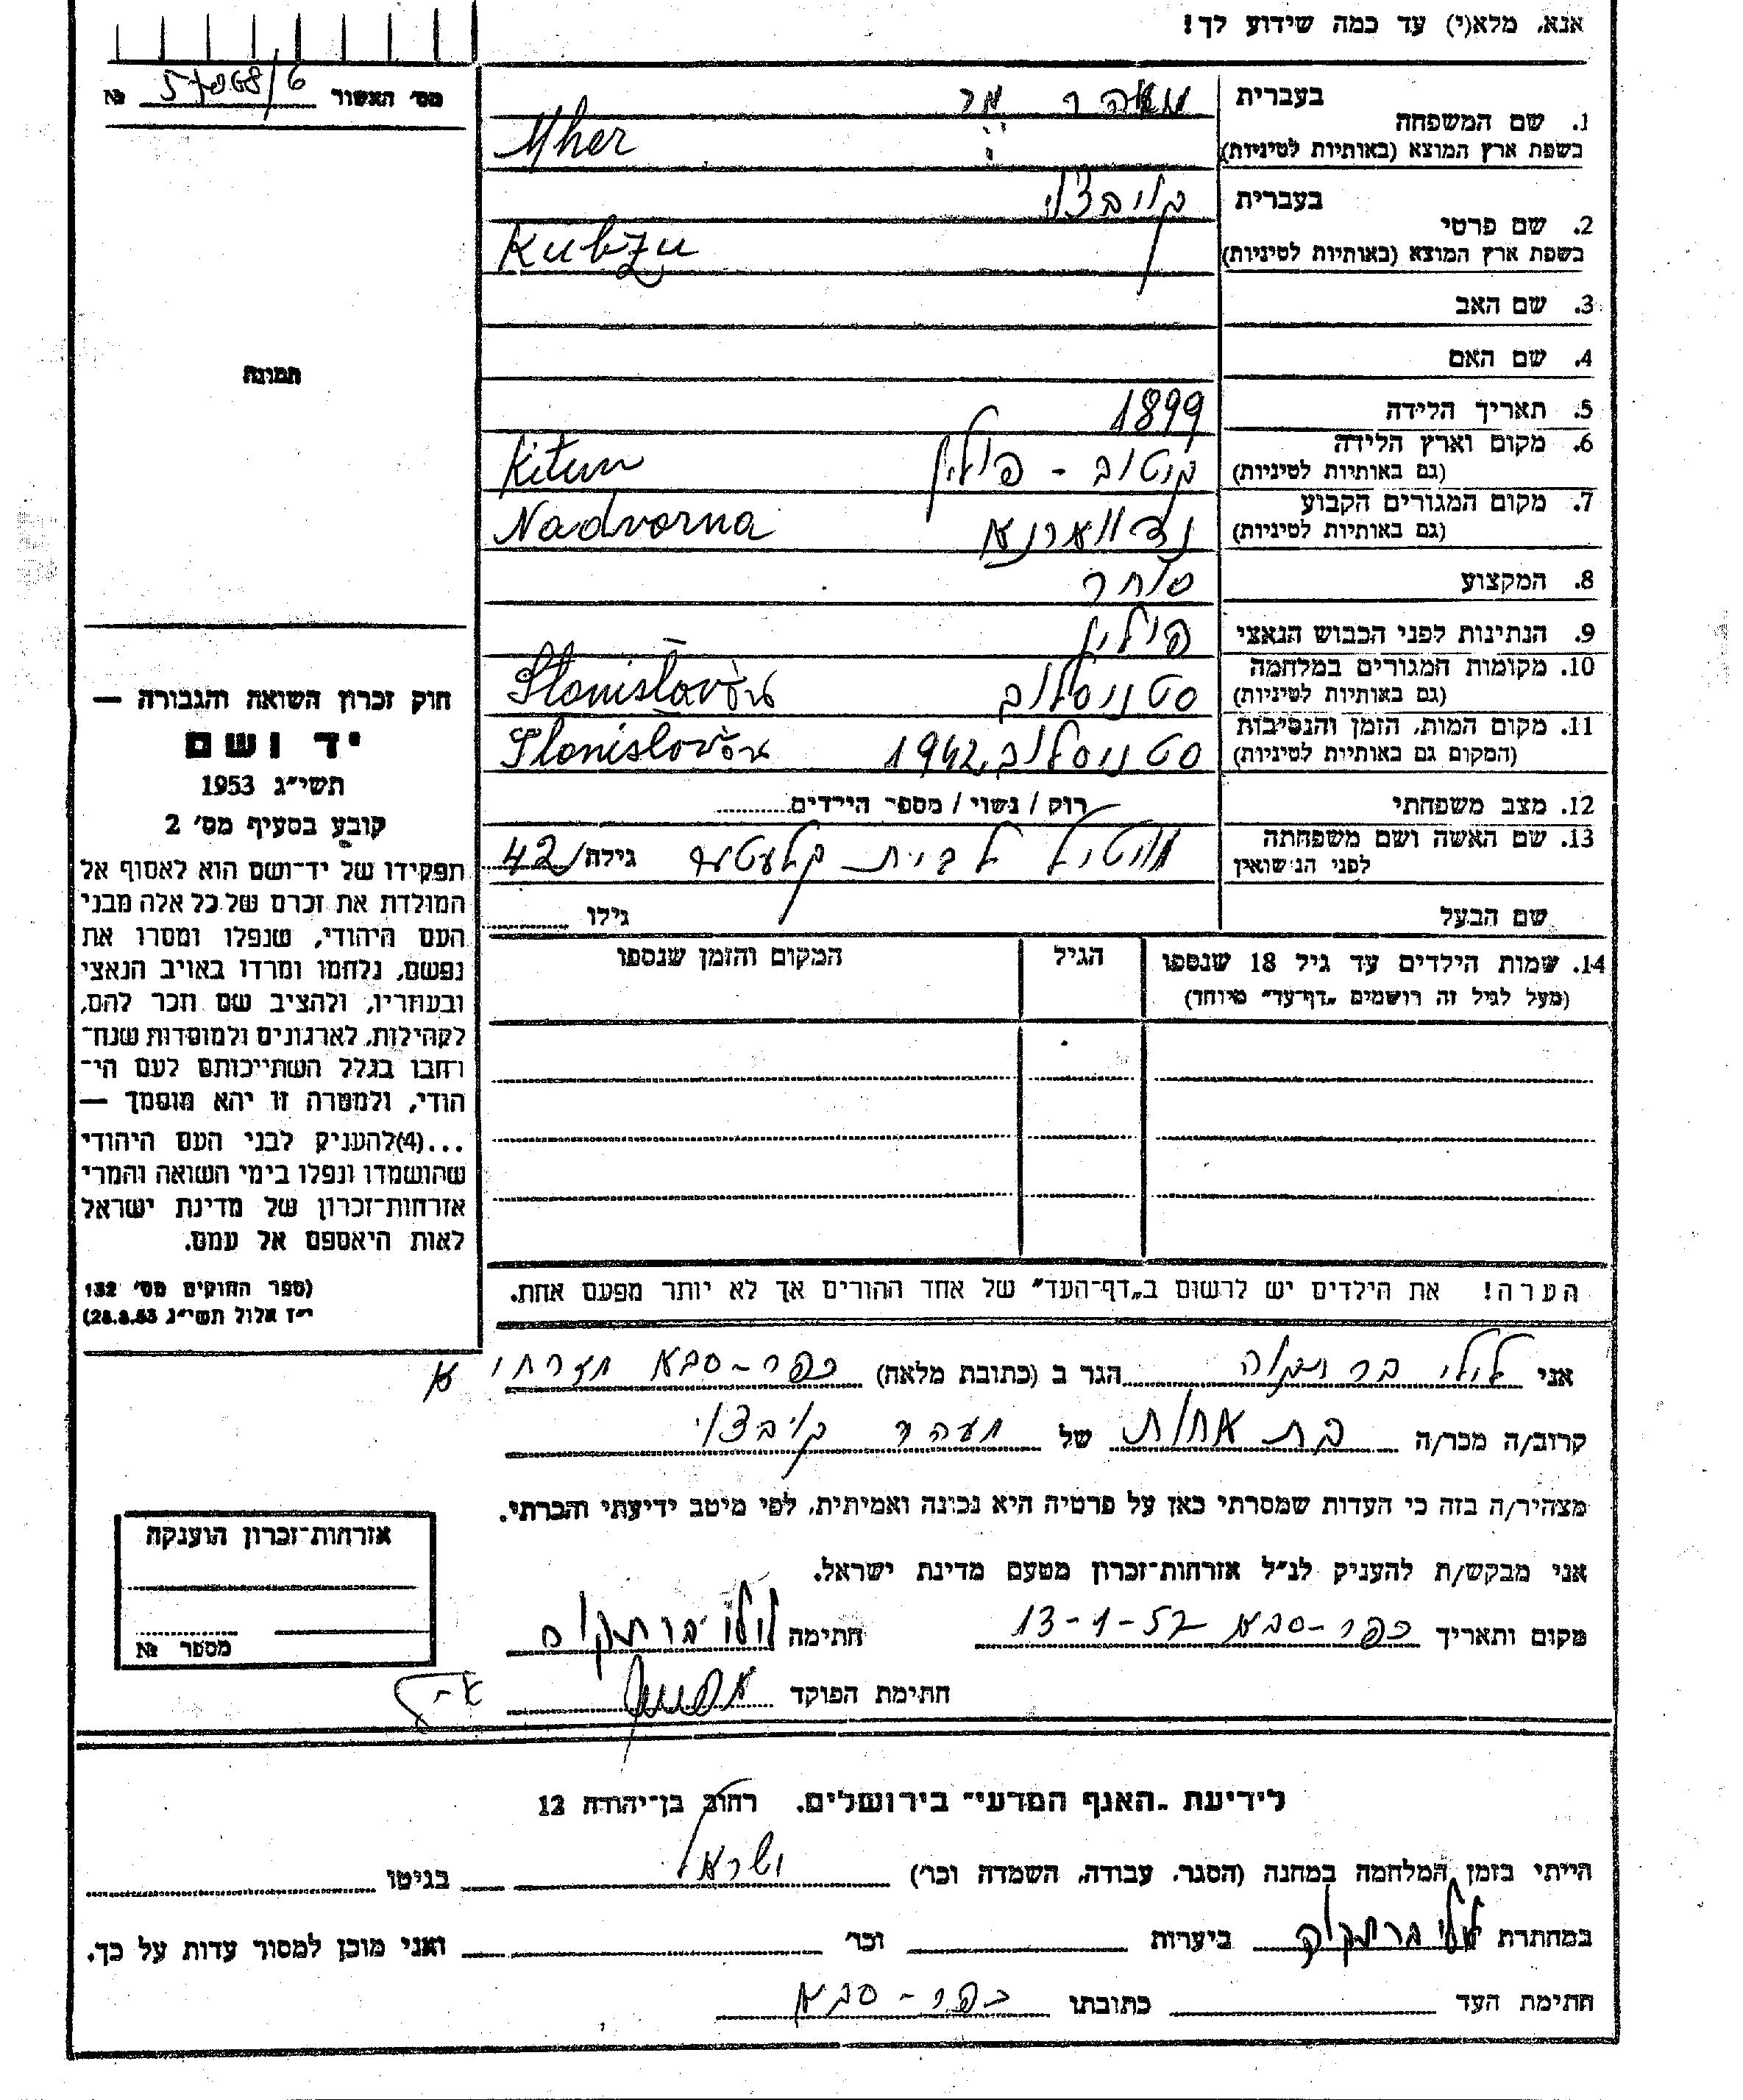 אנא, מלא(י) עד כמה שידוע לך!
מס׳ האשור 57068/6 №
בעברית
1. שם המשפחה
בשפת ארץ המוצא (באותיות לטיניות) Mher
בעברית קויבצ'ו
2. שם פרטי
בשפת ארץ המוצא (באותיות לטיניות) Kubzu
3. שם האב
4. שם האם
5. תאריך הלידה 1899
6. מקום וארץ הלידה קיטוב - פולין
(גם באותיות לטיניות)
7. מקום המגורים הקבוע נדווארנא Nadvorna
(גם באותיות לטיניות)
8. המקצוע סוחר
9. הנתינות לפני הכבוש הנאצי פולין
10. מקומות המגורים במלחמה סטניסלוב
(גם באותיות לטיניות)
11. מקום המות, הזמן והנסיבות סטניסלוב, 1942
(המקום גם באותיות לטיניות)
12. מצב משפחתי רוק / נשוי / מספר הילדים
13. שם האשה ושם משפחתה לבית גילה 42
לפני הנישואין
שם הבעל גילו
14. שמות הילדים עד גיל 18 שנספו הגיל המקום והזמן שנספו
(מעל לגיל זה רושמים „דף־עד״ מיוחד)
הערה! את הילדים יש לרשום ב„דף־העד״ של אחד ההורים אך לא יותר מפעם אחת.
תמונה
חוק זכרון השואה והגבורה —
יד ושם
תשי״ג 1953
קובע בסעיף מס׳ 2
תפקידו של יד־ושם הוא לאסוף אל
המולדת את זכרם של כל אלה מבני
העם היהודי, שנפלו ומסרו את
נפשם, נלחמו ומרדו באויב הנאצי
ובעוזריו, ולהציב שם וזכר להם,
לקהילות, לארגונים ולמוסדות שנח־
רבו בגלל השתייכותם לעם הי־
הודי, ולמטרה זו יהא מוסמך —
...(4) להעניק לבני העם היהודי
שהושמדו ונפלו בימי השואה והמרי
אזרחות־זכרון של מדינת ישראל
לאות היאספם אל עמם.
(ספר החוקים מס׳ 132
י״ז אלול תשי״ג 28.8.53)
אני לילי הגר ב (כתובת מלאה) כפר-סבא מזרחי א
קרוב/ה מכר/ה בת אחות של מעהר קויבצ'ו
מצהיר/ה בזה כי העדות שמסרתי כאן על פרטיה היא נכונה ואמיתית, לפי מיטב ידיעתי והכרתי.
אני מבקש/ת להעניק לנ״ל אזרחות־זכרון מטעם מדינת ישראל.
מקום ותאריך כפר-סבא 13-1-57 חתימה
חתימת הפוקד
אזרחות־זכרון הוענקה
מספר №
לידיעת „האגף המדעי״ בירושלים. רחוב בן־יהודה 12
הייתי בזמן המלחמה במחנה (הסגר, עבודה, השמדה וכו׳) ישראל בגיטו
במחתרת ביערות וכו׳ ואני מוכן למסור עדות על כך.
חתימת העד כתובתו כפר-סבא